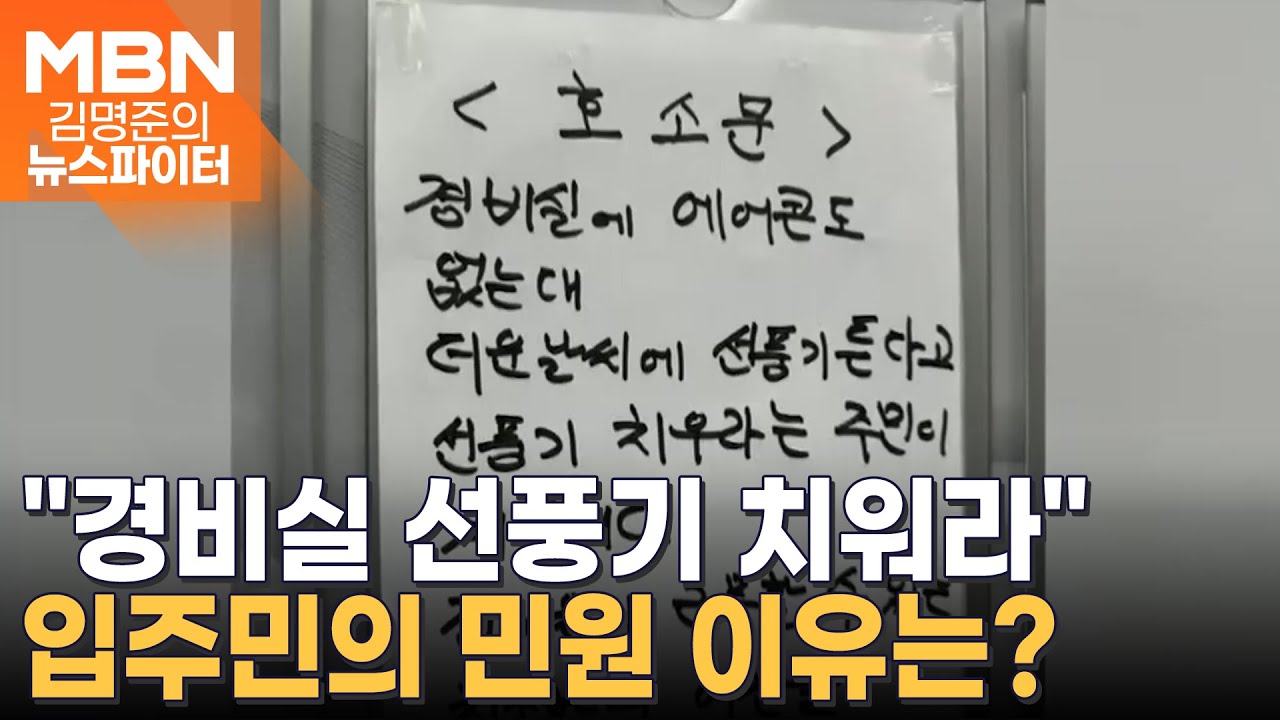 MBN
김명준의
뉴스파이터
< 호소문 >
경비실에 에어콘도
없는대
더운날씨에 선풍기튼다고
선풍기 치우라는 주민이
"경비실 선풍기 치워라"
입주민의 민원 이유는?